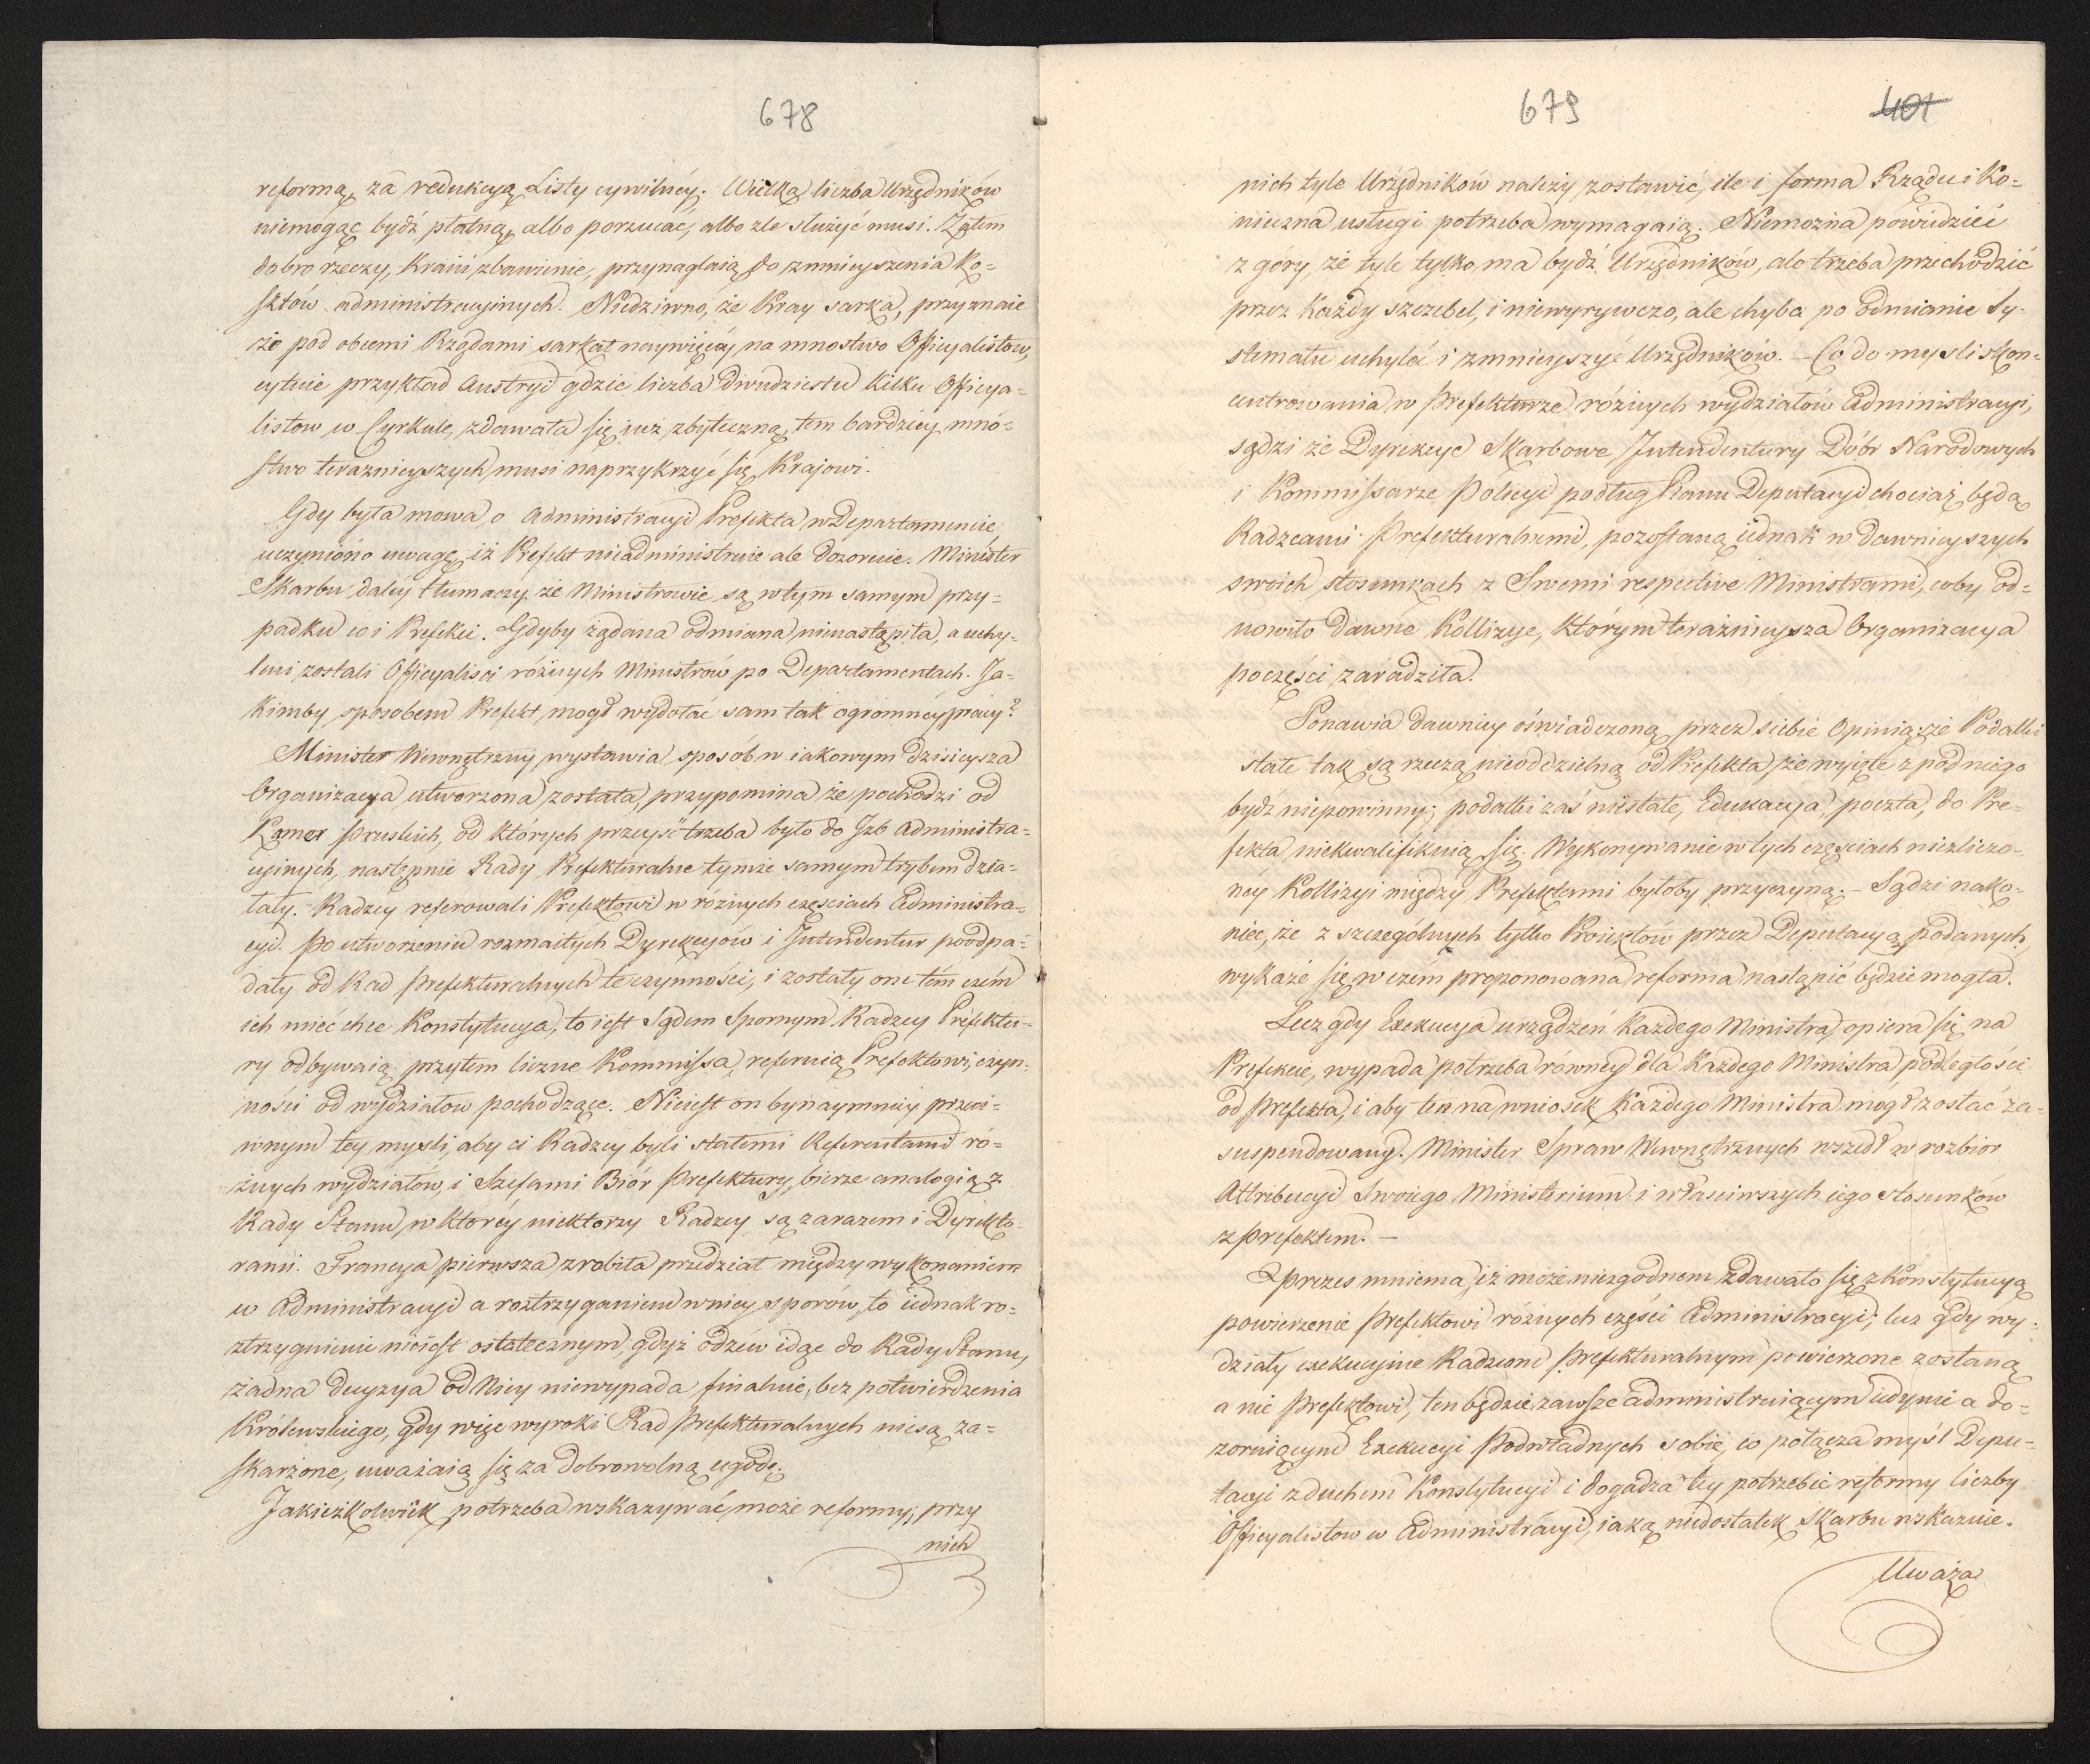 678
reformą, za redukcyą Listy cywilnéy. Wielka liczba Urzędników
niemogąc bydź płatną, albo porzucać, albo zle służyć musi. Zatem
dobro rzeczy, Kraiu zbawienie, przynaglaią do zmnieyszenia Ko=
sztów administracyinych. Niedziwno, że Kray sarka, przyznaie
że pod obcemi Rządami sarkał naywięcéy na mnostwo Officyalistow,
cytuie przykład Austryi gdzie liczba dwudziestu kilku Officya=
listow w Cyrkule, zdawała się iuż zbyteczną, tem bardziéy mnó=
stwo teraznieyszych musi naprzykrzyć się Krajowi.
Gdy była mowa o Administracyi Prefekta w Departamencie
uczyniono uwagę, iż Prefekt nieadministruie ale dozoruie. Minister
Skarbu daléy tłumaczy że Ministrowie są w tym samym przy=
padku co i Prefekci. Gdyby żądana odmiana nienastąpiła, a uchy=
leni zostali Officyalisci różnych Ministrów po Departamentach. Ja=
kimby sposobem Prefekt mogł wydołać sam tak ogromnéy pracy?
Minister Wewnętrzny wystawia sposób w iakowym dzisieysza
Organizacya utworzona została, przypomina że pochodzi od
Kamer Pruskich, od których przeyść trzeba było do Izb Administra=
cyinych, następnie Rady Prefekturalne tymże samym trybem dzia=
łały. Radzcy referowali Prefektowi w różnych częsciach Administra=
cyi. Po utworzeniu rozmaitych Dyrekcyów i Intendentur poodpa=
dały od Rad Prefekturalnych te czynności, i zostały one tém czém
ich mieć chce Konstytucya, to iest Sądem Spornym. Radzcy Prefektu=
ry odbywaią przytem liczne Kommissa, referuią Prefektowi, czyn=
ności od wydziałow pochodzące. Nieiest on bynaymniéy przeci=
wnym tey mysli, aby ci Radzcy byli stałemi Referentami ró=
żnych wydziałów, i Szefami Biór Prefektury, bierze analogią z
Rady Stanu, w któréy niektorzy Radzcy są zarazem i Dyrekto=
rami. Francya pierwsza zrobiła przedział między wykonaniem
w Administracyi a roztrzyganiem w niey sporów, to iednak ro=
ztrzygnienie nieiest ostatecznym, gdyż odzew idąc do Rady Stanu,
żadna decyzya od Niey niewypada finalnie, bez potwierdzenia
Królewskiego, gdy więc wyroki Rad Prefekturalnych niesą za=
skarżone, uważaią się za dobrowolną ugodę.
Jakieżkolwiek potrzeba wskazywać może reformy, przy
nich
679
401
nich tyle Urzędników należy zostawić, ile i forma Rządu i Ko=
nieczna usługi potrzeba wymagaią. Niemożna powiedzieć
z góry, że tyle tylko ma bydź Urzędników, ale trzeba przechodzić
przez każdy szczebel, i niewyrywczo, ale chyba po odmianie Sy=
stematu uchylać i zmnieyszyć Urzędników. – Co do mysli skon=
centrowania w Prefekturze różnych wydziałów Administracyi,
sądzi że Dyrekcye Skarbowe, Intendentury Dóbr Narodowych
i Kommissarze Policyi podług Planu Deputacyi chociaż będą
Radzcami Prefekturalnemi, pozostaną iednak w dawnieyszych
swoich stosunkach z Swemi respective Ministrami, coby od=
nowiło dawne Kollizye, którym teraźnieysza Organizacya
poczęsci zaradziła.
Ponawia dawniey oświadczoną przez siebie Opinią, że Podatki
stałe tak są rzeczą nieoddzielną od Prefekta, że wyięte z pod niego
bydź niepowinny; podatki zaś niestałe, Edukacya, poczta, do Pre=
fekta niekwalifikuią się. Wykonywanie w tych częściach niezliczo=
néy Kollizyi między Prefektami byłoby przyczyną. – Sądzi nako=
niec, że z szczególnych tylko Proiektów przez Deputacyą podanych,
wykaże się w czém proponowana reforma nastąpić będzie mogła.
Lecz gdy Exekucya urządzeń każdego Ministra, opiera się na
Prefekcie, wypada potrzeba równey dla każdego Ministra podległości
od Prefekta, i aby ten na wniosek każdego Ministra mogł zostać za=
suspendowany. Minister Spraw Wewnętrznych wszedł w rozbior
Attribucyi Swoiego Ministerium i właściwszych iego stosunków
z Prefektem. –
JPrezes mniema, iż może niezgodnem zdawało się z Konstytucyą
powierzenie Prefektowi różnych części Administracyi; lecz gdy wy=
działy exekucyine Radzcom Prefekturalnym powierzone zostaną
a nie Prefektowi, ten będzie zawsze administruiącym iedynie a do=
zoruiącym Exekucyi Podwładnych sobie, co połącza myśl Depu=
tacyi z duchem Konstytucyi i dogadza tey potrzebie reformy liczby
Officyalistow w Administracyi, iaką niedostatek Skarbu wskazuie.
Uważa